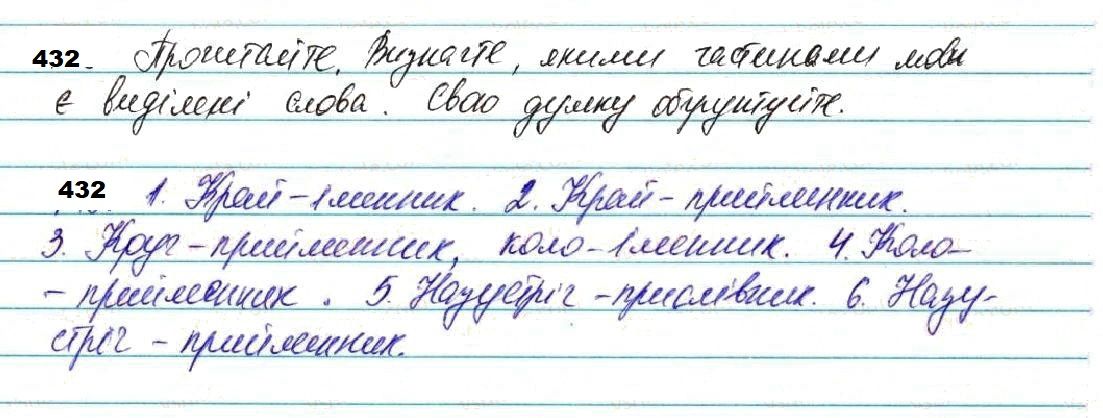 432. Прочитайте. Визначте, якими частинами мови
є виділені слова. Свою думку обґрунтуйте.
432 1. Край - іменник. 2. Край - прийменник.
3. Круг - прийменник, коло - іменник. 4. Коло -
- прийменник. 5. Назустріч - прислівник. 6. Назу-
стріч - прийменник.